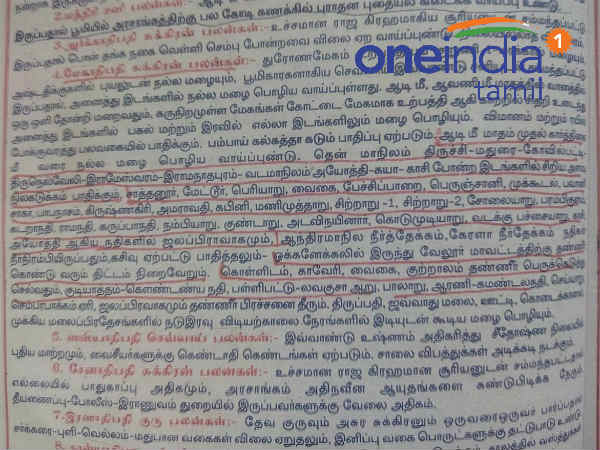 இருப்பதால் பூமியில் அரசாங்கத்திற்கு பல கோடி கணக்கில் புராதன புதையல்
3. அர்க்காதிபதி சுக்கிரன் பலன்கள்:- உச்சமான ராஜ கிரஹமாகிய சூரியனுடன் சம்மந்தப்பட்டு
இருப்பதால் பொன் தங்க நகை வெள்ளி செம்பு போன்றவை விலை ஏற வாய்ப்புண்டு
4. மேகாதிபதி சுக்கிரன் பலன்கள்:- துரோணமேகம்
அஷ்டதிக்குகளிலும் புயலுடன் நல்ல மழையும், பூமிகாரகனாகிய
இருப்பதால், அனைத்து இடங்களில் நல்ல மழை பொழிய வாய்ப்புள்ளது. ஆடி மீ, ஆவணி
ஒரு ஒளி தோன்றி மறைவதும், கருநிறமுள்ள மேகங்கள் கோட்டை மேகமாக உற்பத்தி ஆகி
அனைத்து இடங்களில் பகல் மற்றும் இரவில் எல்லா இடங்களிலும் மழை பொழியும். விமானம் மற்றும் ரயில்
போக்குவரத்து பலவகையில் பாதிக்கும். பம்பாய் கல்கத்தா கடும் பாதிப்பு ஏற்படும். ஆடி மீ மாதம் முதல் கார்த்திகை
மீ வரை நல்ல மழை பொழிய வாய்ப்புண்டு. தென் மாநிலம் திருச்சி-மதுரை-கோவில்பட்டி-
திருநெல்வேலி-இராமேஸ்வரம்-இராமநாதபுரம்- வடமாநிலம் அயோத்தி-கயா- காசி போன்ற இடங்களில் சிறிய அளவு
நிலகடுக்கம் பாதிக்கும். சாத்தனூர், மேட்டூர், பெரியாறு, வைகை, பேச்சிப்பாறை, பெருஞ்சாணி, முக்கூடல், பவானி
சாகர், பாபநாசம், கிருஷ்ணகிரி, அமராவதி, கபினி, மணிமுத்தாறு, சிற்றாறு -1, சிற்றாறு-2, சோலையாறு, பரம்பிக்குளம்
கடாநதி, ராமநதி, கருப்பாநதி, நம்பியாறு, குண்டாறு, அடவிநயினா, கொடுமுடியாறு, வடக்கு பச்சையாறு
அயோத்தி ஆகிய நதிகளில் ஜலப்பிரவாகமும், ஆந்திராமாநில நீர்த்தேக்கம், கேரளா நீர்தேக்கம்
நீர்நிரம்பியிருப்பதும்,கசிவு ஏற்பட்டு பாதித்தலும்- ஒக்கனேக்கலில் இருந்து வேலூர் மாவட்டத்திற்கு தண்ணீர்
கொண்டு வரும் திட்டம் நிறைவேறும். கொள்ளிடம், காவேரி, வைகை, குற்றாலம் தண்ணீர் பெருக்கெடுத்து
செல்வதும், குடியாத்தம்-கௌண்டன்ய நதி, பள்ளிபட்டு-லவகுசா ஆறு, பாலாறு, ஆரணி-கமண்டலநதி, செய்யாறு
செம்பரம்பாக்கம் ஏரி, ஜலப்பிரவாகமும் தண்ணீர் பிரச்சனை தீரும். திருப்பதி, ஜவ்வாது மலை, ஊட்டி, கொடைக்கானல்
முக்கிய மலைப்பிரதேசங்களில் நடுஇரவு விடியற்காலை நேரங்களில் இடியுடன் கூடிய மழை பொழியும்.
5. ஸஸ்யாதிபதி செவ்வாய் பலன்கள்:- இவ்வாண்டு உஷ்ணம் அதிகரித்து சீதோஷ்ண நிலையில்
புதிய மாற்றமும், வைசீயர்களுக்கு கெண்டாதி கெண்டங்கள் ஏற்படும். சாலை விபத்துக்கள் அடிக்கடி நடக்கும்.
6. சேனாதிபதி சுக்கிரன் பலன்கள்:- உச்சமான ராஜ கிரஹமான சூரியனுடன் சம்மந்தப்பட்டதால்
எல்லையில் பாதுகாப்பு அதிகமும், அரசாங்கம் அதிநவீன ஆயுதங்களை கண்டுபிடிக்க நேரும்.
தீயணைப்பு-போலீஸ்-இராணுவம் துறையில் இருப்பவர்களுக்கு வேலை அதிகம்.
7-இரஸாதிபதி குரு பலன்கள்:- தேவ குருவும் அசுர சுக்கிரனும் ஒருவரைஒருவர் பார்ப்பதால்
சர்க்கரை-புளி-வெல்லம்-மதுபான வகைகள் விலை ஏறுதலும், இனிப்பு வகை பொருட்களுக்கு தட்டுபாடு
oneindia
1
tamil